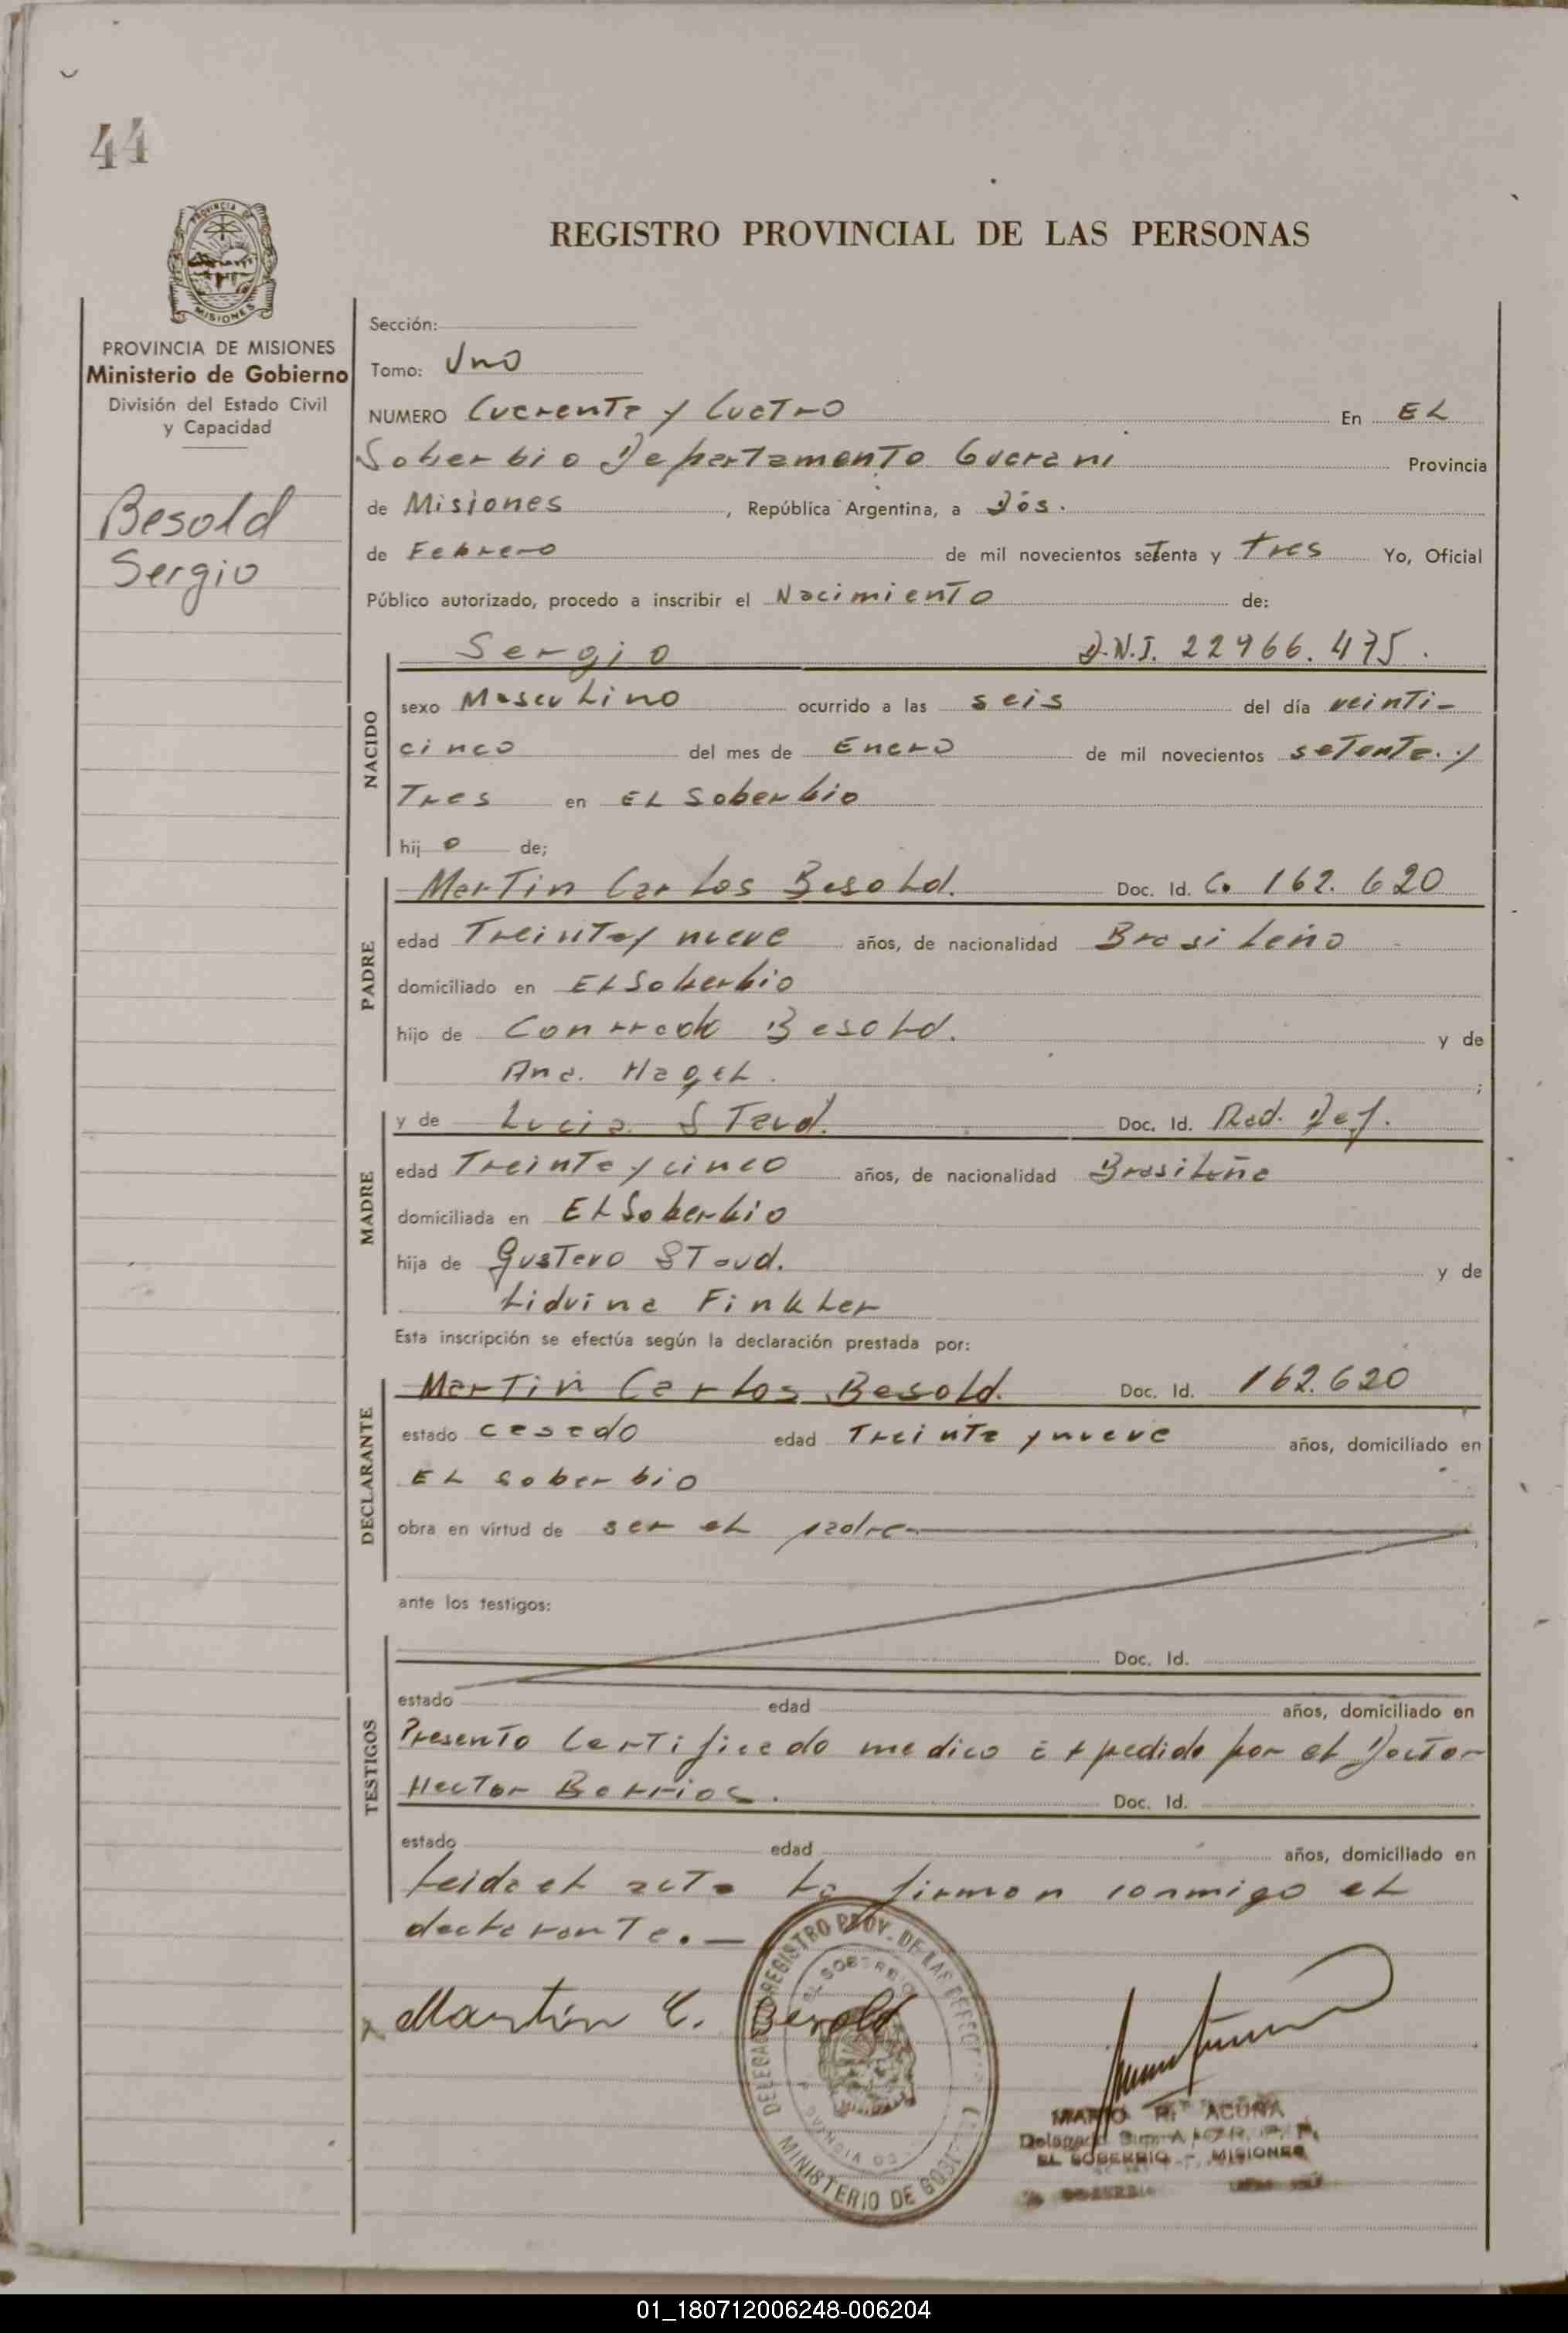 44
PROVINCIA DE
MISIONES
REGISTRO PROVINCIAL DE LAS PERSONAS
PROVINCIA DE MISIONES
Ministerio de Gobierno
División del Estado Civil
y Capacidad
Besold
Sergio
Sección:
Tomo: Uno
NUMERO Cuarenta y Cuatro En EL
Soberbio Departamento Guarani Provincia
de Misiones, República Argentina, a Dós.
de Febrero de mil novecientos setenta y tres Yo, Oficial
Público autorizado, procedo a inscribir el Nacimiento de:
NACIDO
Sergio D.N.I. 22966.475.
sexo Masculino ocurrido a las seis del día veinti-
cinco del mes de Enero de mil novecientos setenta y
Tres en EL Soberbio
hijo de;
PADRE
Martin Carlos Besold. Doc. Id. C. 162.620
edad Treinta y nueve años, de nacionalidad Brasileño
domiciliado en El Soberbio
hijo de Conrrado Besold. y de
Ana. Hagel. ;
MADRE
y de Lucia Staud. Doc. Id. Rad. Def.
edad Treinta y cinco años, de nacionalidad Brasileña
domiciliada en El Soberbio
hija de Gustavo Staud. y de
Lidvina Finkler
Esta inscripción se efectúa según la declaración prestada por:
DECLARANTE
Martin Carlos Besold. Doc. Id. 162.620
estado casado edad Treinta y nueve años, domiciliado en
EL Soberbio
obra en virtud de ser el padre
ante los testigos:
TESTIGOS
Doc. Id.
estado edad años, domiciliado en
Presento Certificado medico Expedido por el Doctor
Hector Barrios. Doc. Id.
estado edad años, domiciliado en
Leida el acta La firman conmigo el
declarante.—
Martin C. Besold
REGISTRO PROV. DE LAS
EL SOBERBIO
MINISTERIO DE
MARIO R. ACUÑA
EL SOBERBIO - MISIONES
01_180712006248-006204